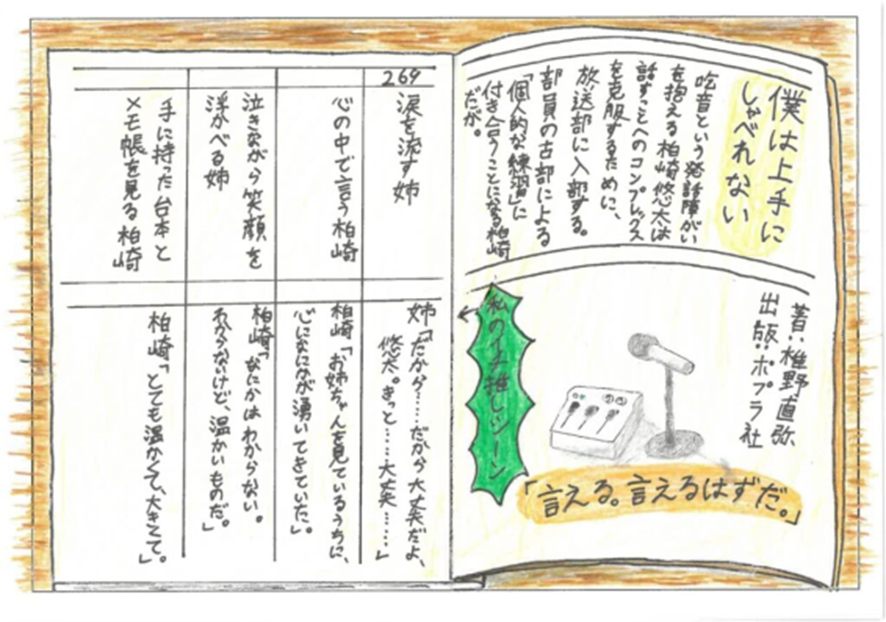 僕は上手に
しゃべれない
吃音という発話障がい
を抱える柏崎悠太は
話すことへのコンプレックス
を克服するために、
放送部に入部する。
部員の古部による
「個人的な練習」に
付き合うことになる柏崎
だが。
著:椎野直弥
出版:ポプラ社
「言える。言えるはずだ。」
私のイチ推しシーン
269
涙を流す姉
姉「だから……だから大丈夫だよ、
悠太。きっと……大丈夫……」
心の中で言う柏崎
柏崎「お姉ちゃんを見ているうちに、
心になにかが湧いてきていた。」
泣きながら笑顔を
浮かべる姉
柏崎「なにかはわからない。
わからないけど、温かいものだ。」
手に持った台本と
メモ帳を見る柏崎
柏崎「とても温かくて、大きくて。」